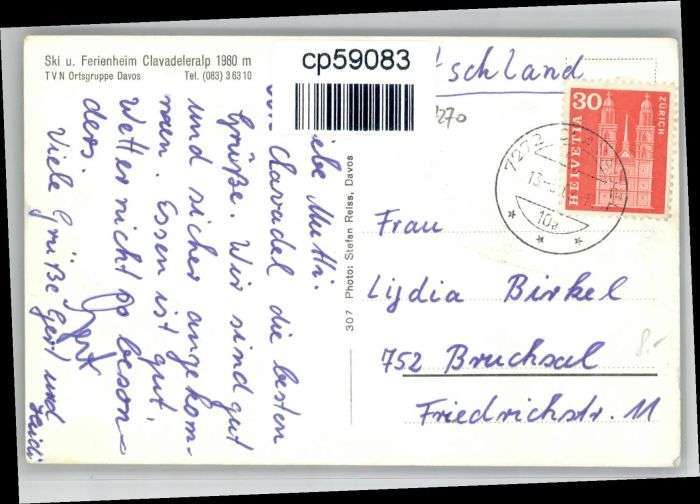 Ski u. Ferienheim Clavadeleralp 1980 m
TVN Ortsgruppe Davos Tel. (083) 3 63 10
cp59083
Mutti.
Clavadel die besten
Grüße. Wir sind gut
und sicher angekom-
men. Essen ist gut.
Wetter nicht so beson-
ders.
Viele Grüße Gert und
307 Photo: Stefan Reiss, Davos
schland
7270
30
HELVETIA
ZÜRICH
7272
10a
Frau
Lydia Birkel
752 Bruchsal
Friedrichstr. 11
8.-